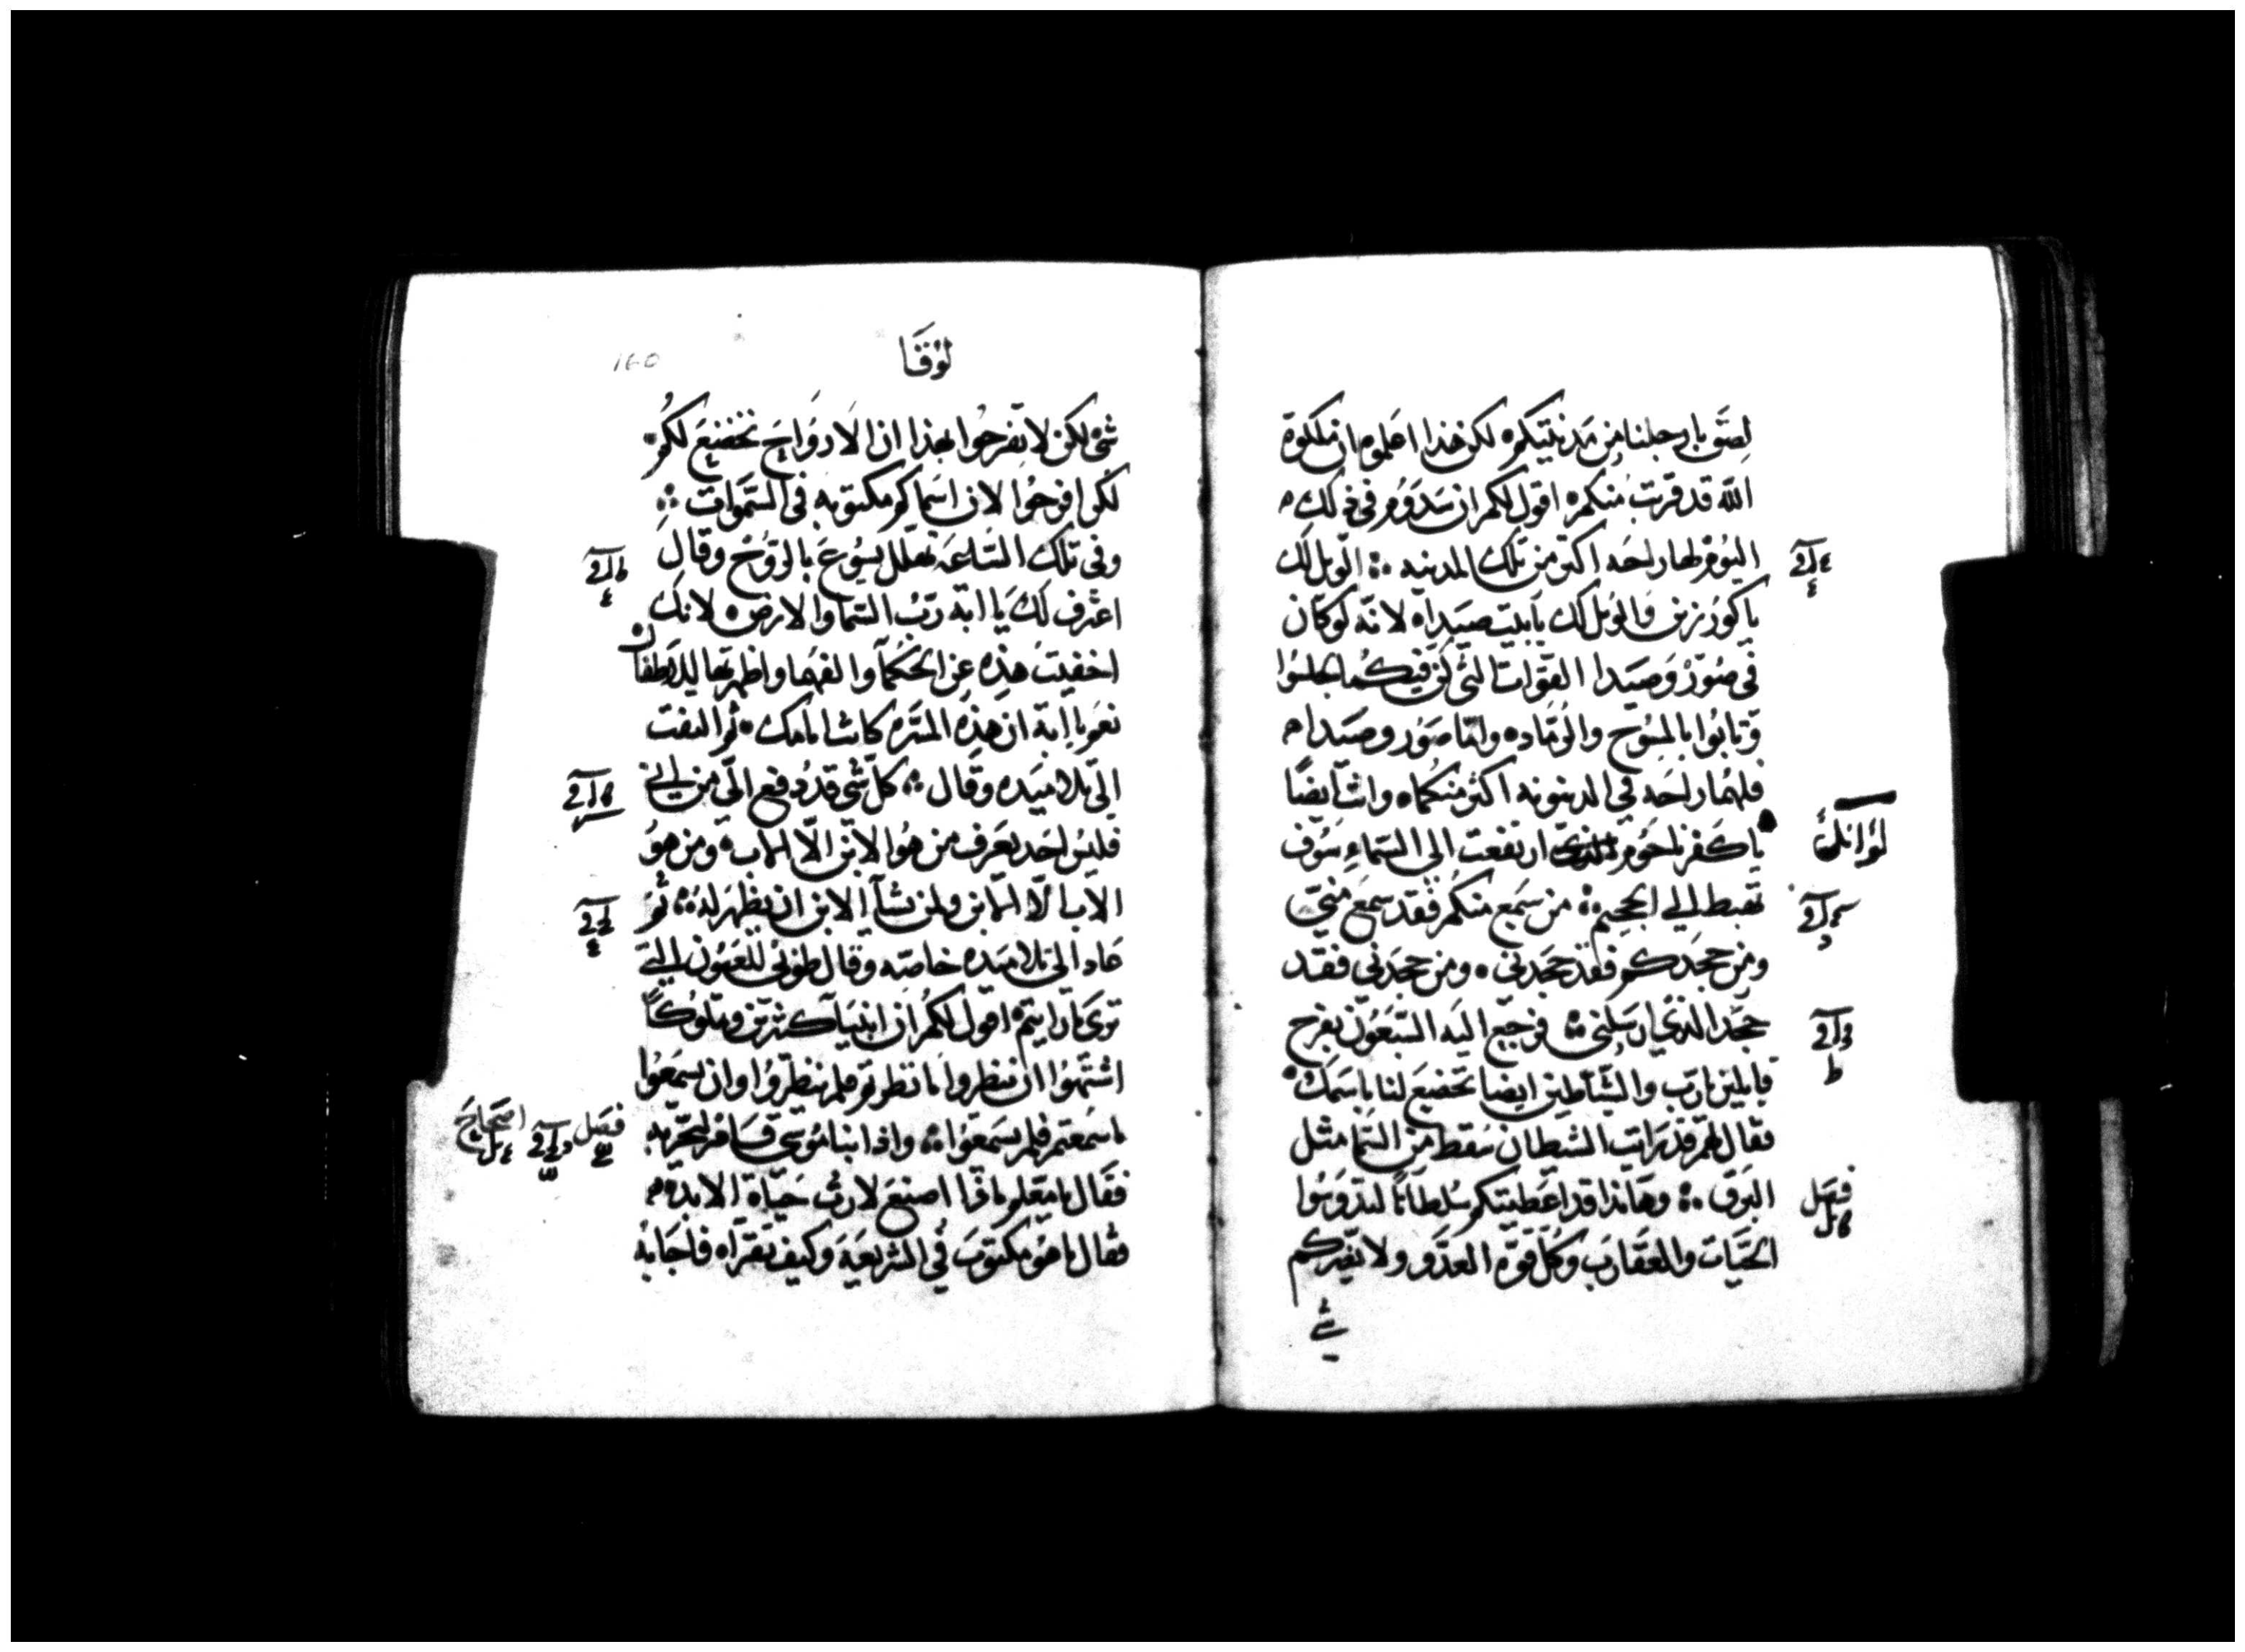 لصق بارجلنا من مدينتكم لكن هذا اعلموه ان ملكوة
الله قد قربت منكم اقول لكم ان سدوم في ذلك
اليوم لها راحه اكتر من تلك المدينه الويل لك
يا كورزين والويل لك يا بيت صيدا لانه لو كان
في صور وصيدا القوات التي كن فيكما جلسوا
وتابوا بالمسوح والرماد واما صور وصيدا
فلهما راحه في الدينونه اكثر منكما وانت ايضًا
يا كفرناحوم ارتفعت الى السماء سوف
لو انك
تهبط الى الجحيم من سمع منكم فقد سمع مني
ومن جحدكم فقد جحدني ومن جحدني فقد
جحد الذي ارسلني فرجع اليه السبعون بفرح
قايلين يارب والشياطين ايضا تخضع لنا باسمك
فقال لهم قد رايت الشيطان سقط من السما مثل
البرق وهانذا قد اعطيتكم سلطانًا لتدوسوا
فصل
الحيات والعقارب وكل قوة العدو ولا يضركم
شي
لوقا
160
شي لكن لا تفرحوا بهذا ان الارواح تخضع لكم
لكن افرحوا لان اسماكم مكتوبه في السموات
وفي تلك الساعه تهلل يسوع بالروح وقال
اعترف لك يا ابة رب السما والارض لانك
اخفيت هذه عن الحكما والفهما واظهرتها للاطفال
نعم يا ابة ان هذه المسره كانت امامك ثم التفت
الى تلاميده وقال كل شي قد دفع الي من ابي
فليس احد يعرف من هو الابن الا الاب ومن هو
الاب الا الابن ولمن يشا الابن ان يظهر له ثم
عاد الى تلاميده خاصته وقال طوبى للعيون التي
ترى ما رايتم اقول لكم ان انبيا كثيرين وملوكًا
اشتهوا ان ينظروا ما نظرتم فلم ينظروا وان يسمعوا
ما سمعتم فلم يسمعوا واذا ناموسي قام ليجربه
فصل اصحاح
فقال يا معلم ماذا اصنع لارث حياة الابد
فقال ما هو مكتوب في الشريعه وكيف تقراه فاجابه